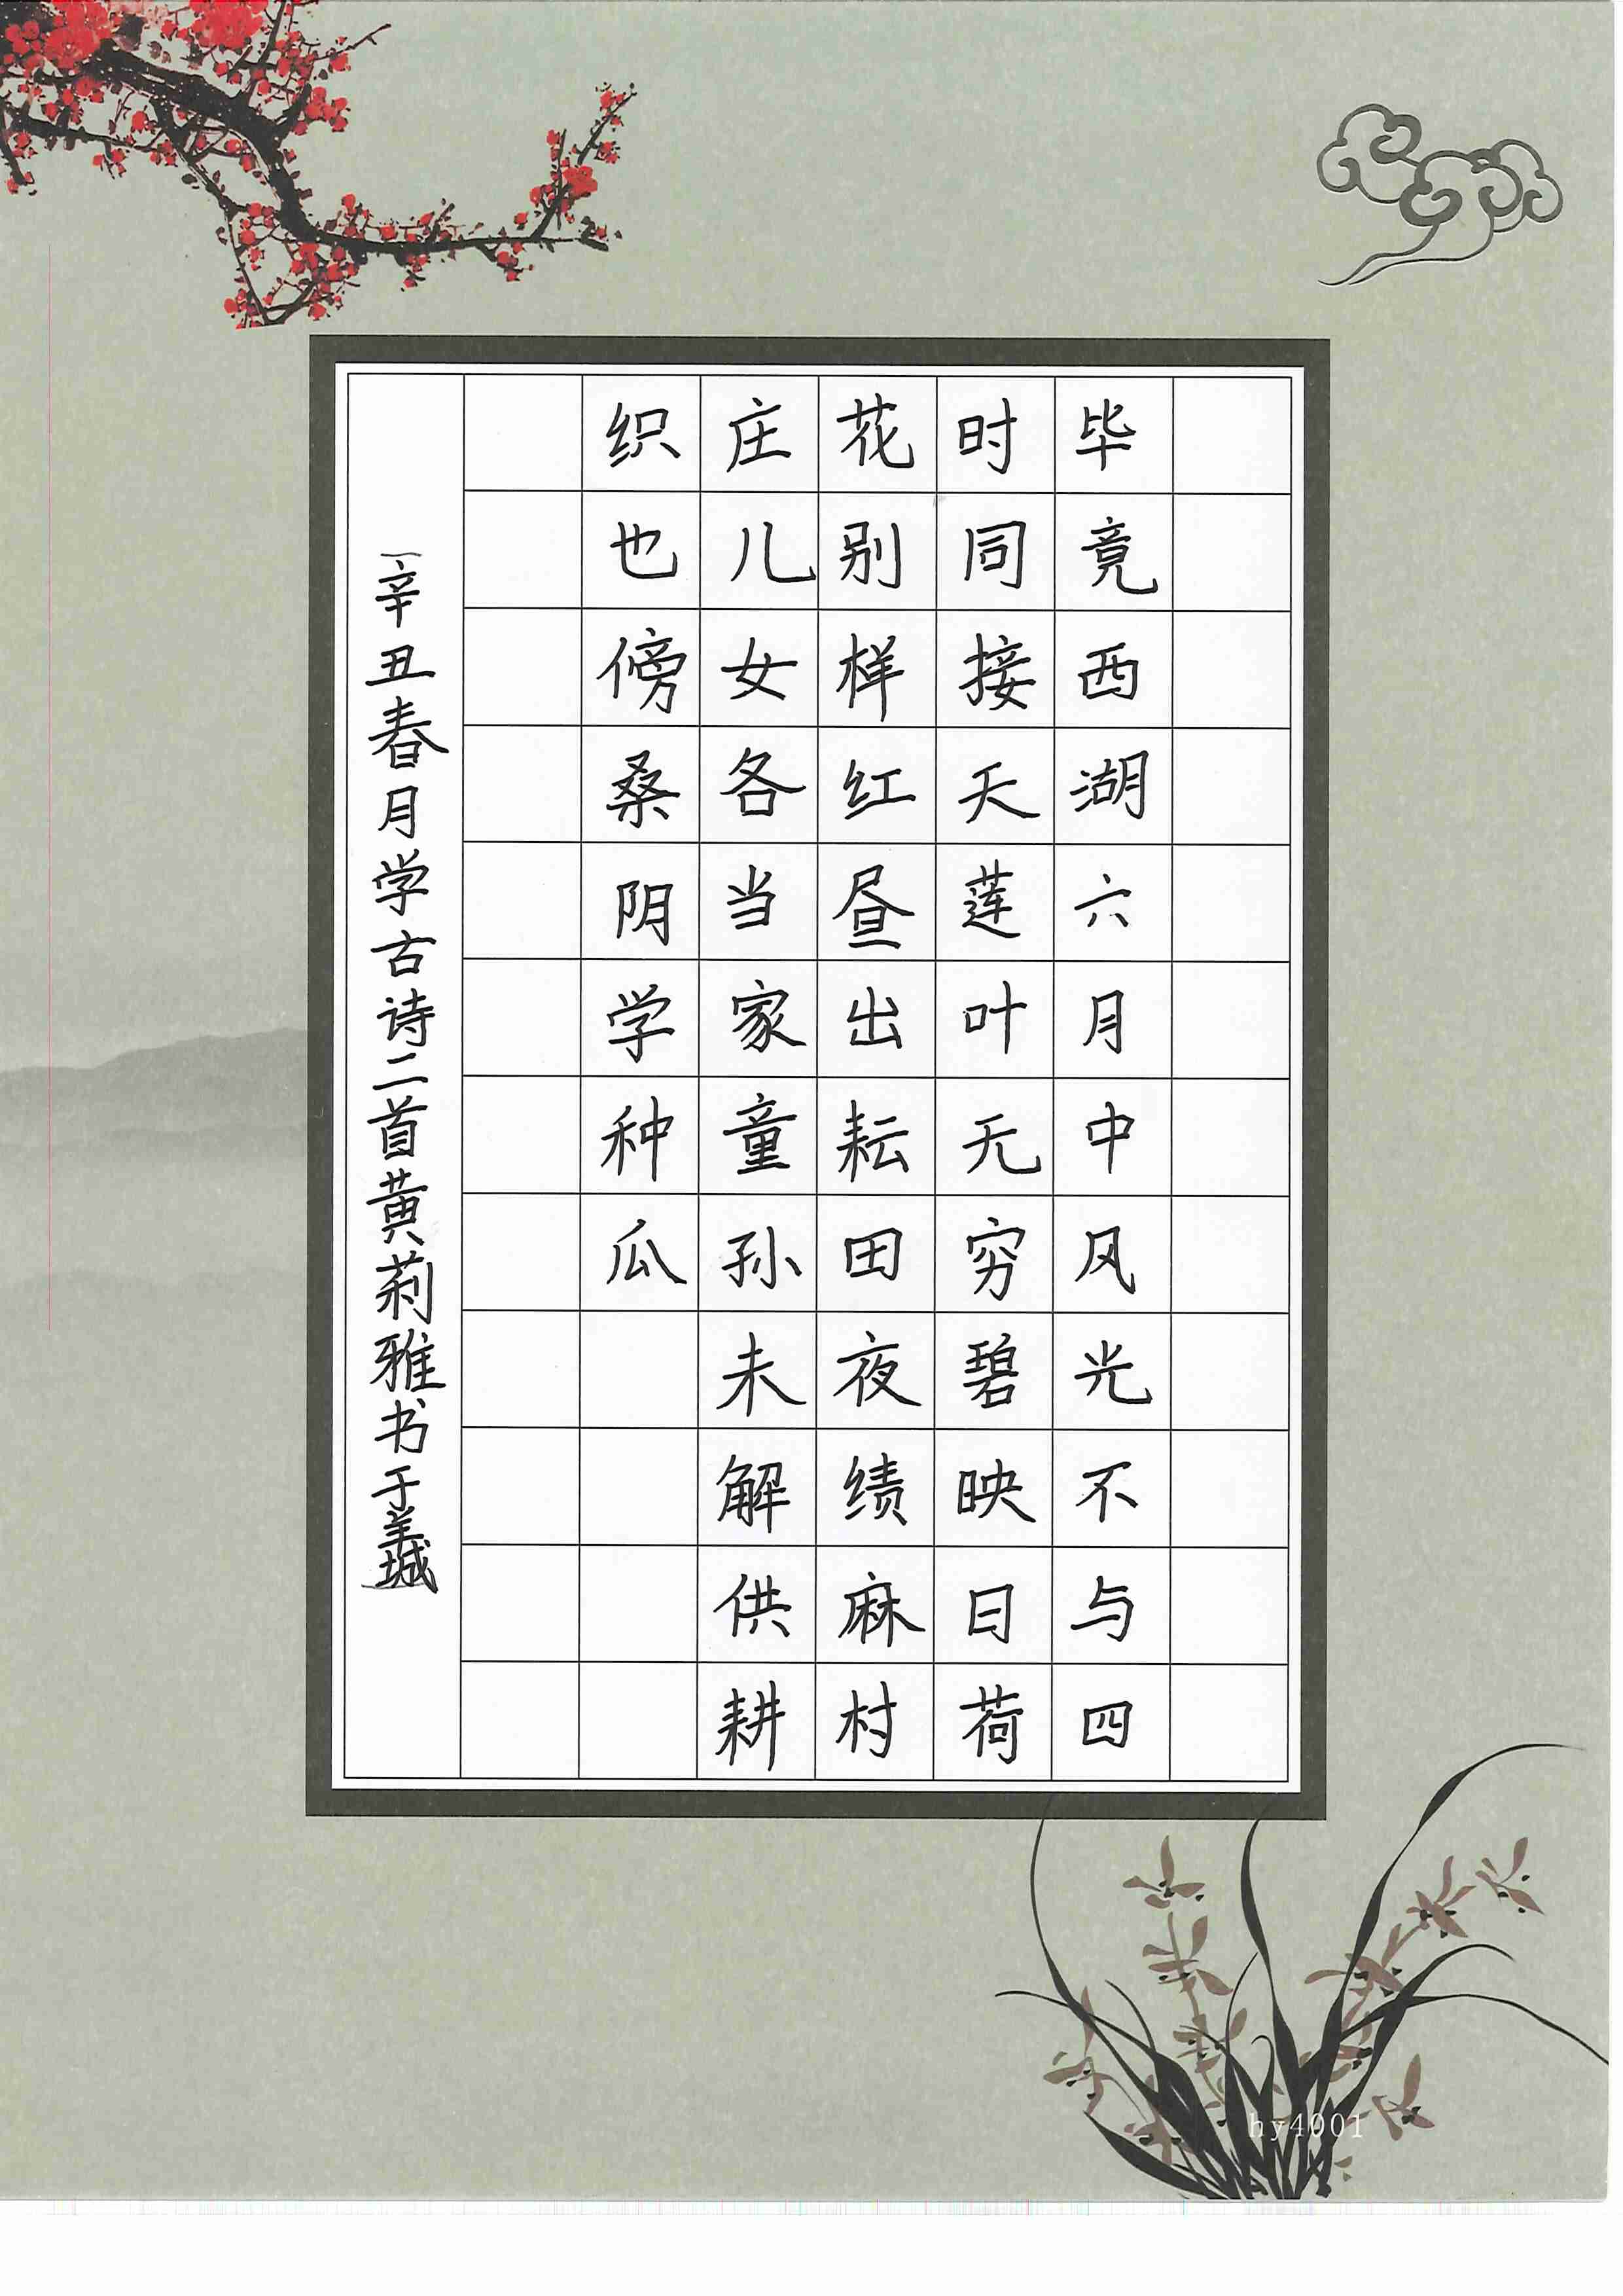 毕竟西湖六月中风光不与四
时同接天莲叶无穷碧映日荷
花别样红昼出耘田夜绩麻村
庄儿女各当家童孙未解供耕
织也傍桑阴学种瓜
辛丑春月学古诗二首黄莉雅书于義城
hy4001